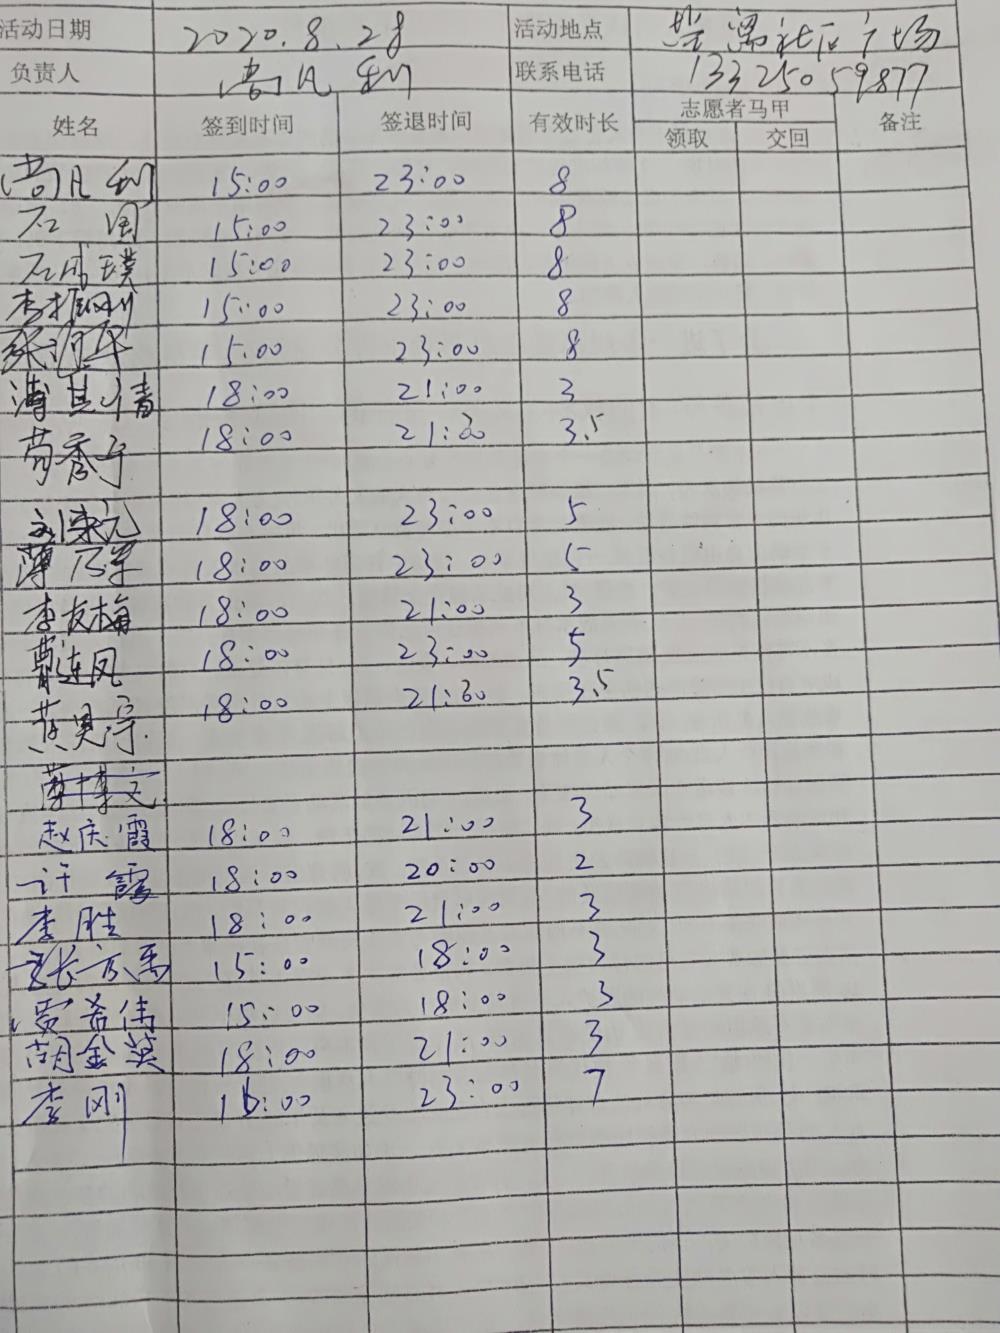 活动日期 2020.8.28 活动地点 社区广场
负责人 尚凡利 联系电话 13325059877
姓名 签到时间 签退时间 有效时长 志愿者马甲 备注
领取 交回
尚凡利 15:00 23:00 8
石国 15:00 23:00 8
石 璞 15:00 23:00 8
李振刚 15:00 23:00 8
张 华 15:00 23:00 8
其 18:00 21:00 3
秀 18:00 21:30 3.5
刘荣元 18:00 23:00 5
薄乃军 18:00 23:00 5
李友梅 18:00 21:00 3
曹连凤 18:00 23:00 5
18:00 21:30 3.5
薄博文
赵庆霞 18:00 21:00 3
许霞 18:00 20:00 2
李胜 18:00 21:00 3
张 15:00 18:00 3
贾希伟 15:00 18:00 3
胡金英 18:00 21:00 3
李刚 16:00 23:00 7